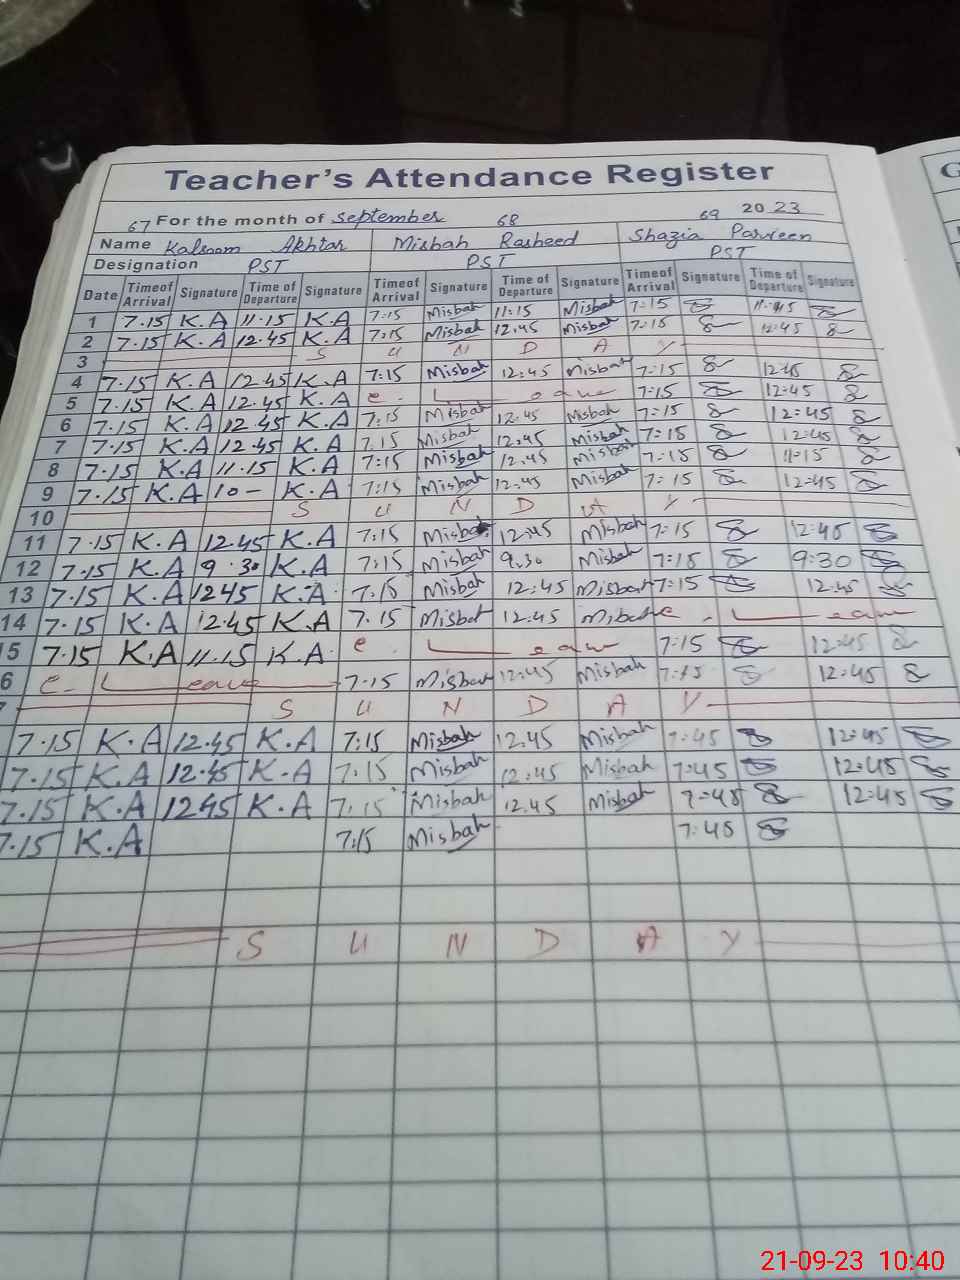 Teacher's Attendance Register
67 For the month of september 68 69 2023
Name Kalsoom Akhtar Misbah Rasheed Shazia Parveen
Designation PST PST PST
Date Time of Arrival Signature Time of Departure Signature Time of Arrival Signature Time of Departure Signature Time of Arrival Signature Time of Departure Signature
1 7.15 K.A 11.15 K.A 7:15 Misbah 11:15 Misbah 7:15 11:15
2 7.15 K.A 12.45 K.A 7:15 Misbah 12:45 Misbah 7:15 12:45
3 S U N D A Y
4 7.15 K.A 12.45 K.A 7:15 Misbah 12:45 Misbah 7:15 12:45
5 7.15 K.A 12.45 K.A e. Leave 7:15 12:45
6 7.15 K.A 12.45 K.A 7:15 Misbah 12:45 Misbah 7:15 12:45
7 7.15 K.A 12.45 K.A 7:15 Misbah 12:45 Misbah 7:15 12:45
8 7.15 K.A 11.15 K.A 7:15 Misbah 12.45 Misbah 7:15 11:15
9 7.15 K.A 10- K.A 7:15 Misbah 12:45 Misbah 7:15 12:45
10 S U N D A Y
11 7.15 K.A 12.45 K.A 7:15 Misbah 12:45 Misbah 7:15 12:45
12 7.15 K.A 9.30 K.A 7:15 Misbah 9.30 Misbah 7:15 9:30
13 7.15 K.A 1245 K.A 7.15 Misbah 12:45 Misbah 7:15 12:45
14 7.15 K.A 12.45 K.A 7.15 Misbah 12:45 Misbah e. Leave
15 7.15 K.A 11.15 K.A e. Leave 7:15 12:45
6 e. Leave 7.15 Misbah 12:45 Misbah 7:15 12:45
S U N D A Y
7.15 K.A 12.45 K.A 7:15 Misbah 12.45 Misbah 7:45 12:45
7.15 K.A 12.45 K.A 7:15 Misbah 12:45 Misbah 7:45 12:45
7.15 K.A 1245 K.A 7:15 Misbah 12.45 Misbah 7:45 12:45
7.15 K.A 7:15 Misbah 7:45
S U N D A Y
21-09-23 10:40